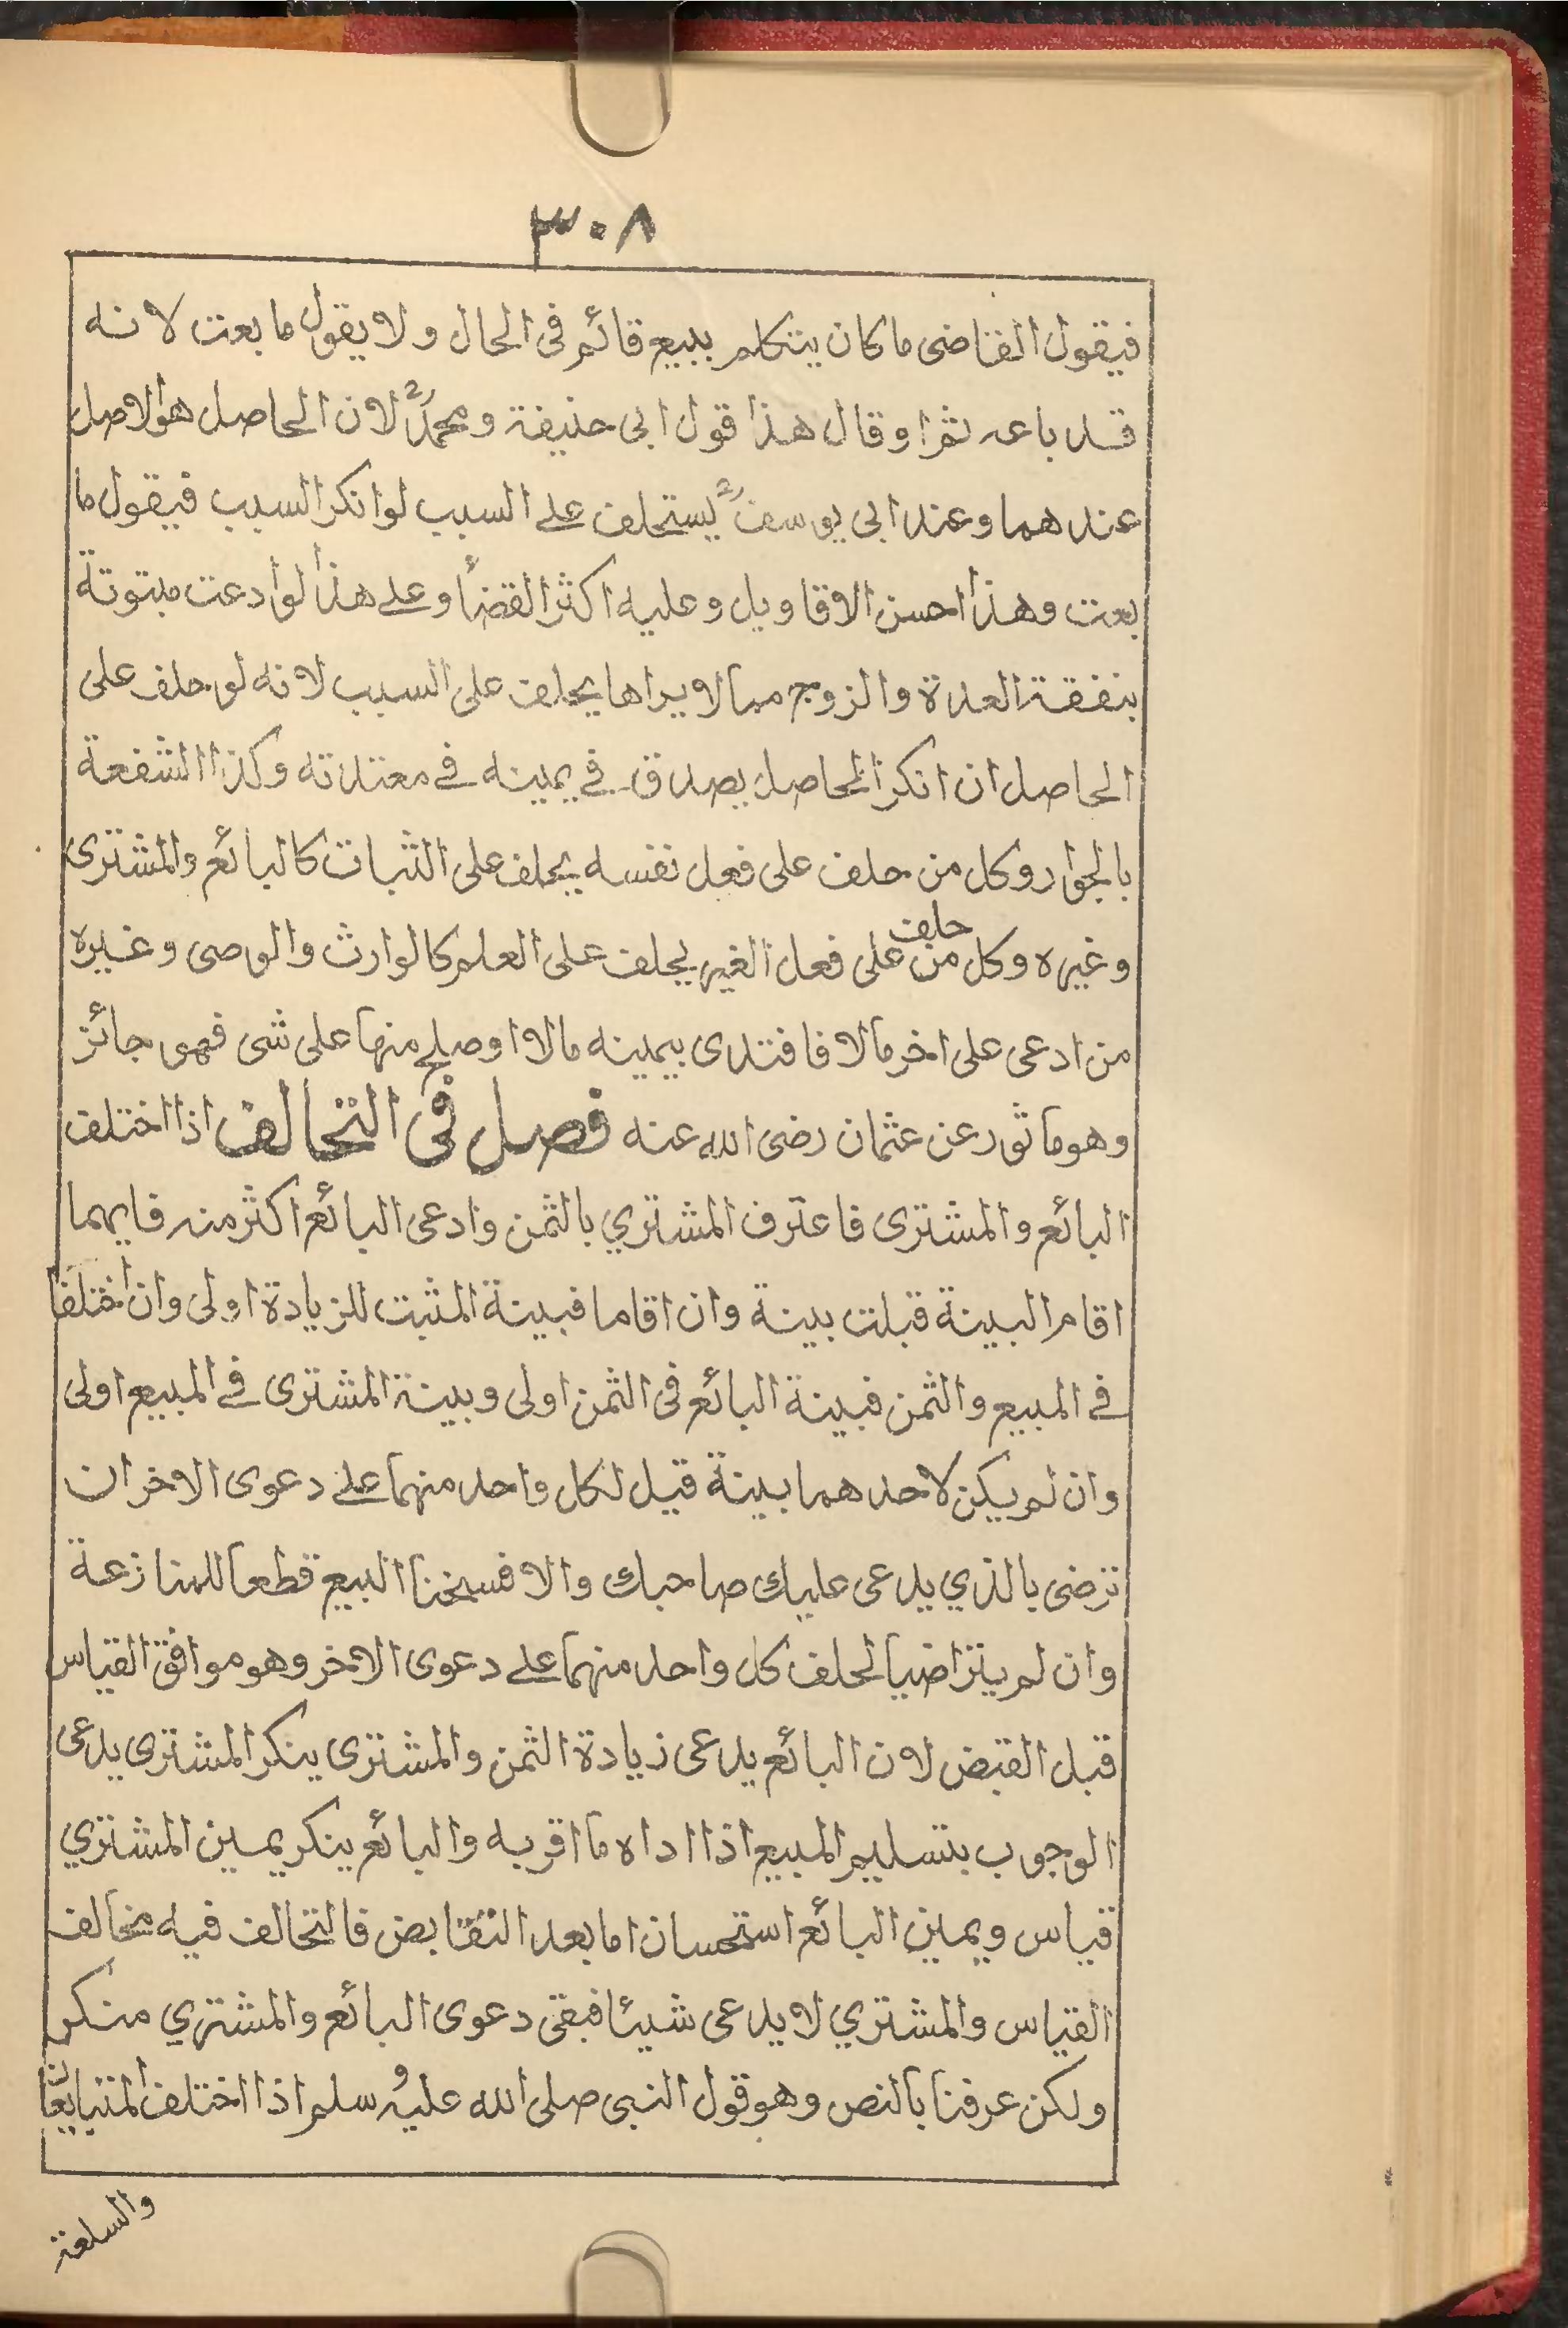 ٣٠٨
فيقول القاضى ما كان يتكلم ببيع قائم فى الحال ولا يقول ما بعت لانه
قد باعه ثمرا وقال هذا قول ابى حنيفة ومحمدؒ لان الحاصل هو الاصل
عندهما وعند ابى يوسفؒ يستحلف على السبب لو انكر السبب فيقول ما
بعت وهذا احسن الاقاويل وعليه اكثر القضاء وعلى هذا لو ادعت مبتوتة
بنفقة العدة والزوج مما لا يراها يحلف على السبب لانه لو حلف على
الحاصل ان انكر الحاصل يصدق فى يمينه فى معتدته وكذا الشفعة
بالجوار وكل من حلف على فعل نفسه يحلف على الثبات كالبائع والمشترى
وغيره وكل من حلف على فعل الغير يحلف على العلم كالوارث والوصى وغيره
من ادعى على اخر مالا فافتدى بيمينه مالا اوصلح منها على شى فهو جائز
وهو ماثور عن عثمان رضى الله عنه فصل فى التحالف اذا اختلف
البائع والمشترى فاعترف المشتري بالثمن وادعى البائع اكثر منه فايهما
اقام البينة قبلت بينة وان اقاما فبينة المثبت للزيادة اولى وان اختلفا
فى المبيع والثمن فبينة البائع فى الثمن اولى وبينة المشترى فى المبيع اولى
وان لم يكن لاحدهما بينة قيل لكل واحد منهما على دعوى الاخر ان
ترضى بالذي يدعى عليك صاحبك والا فسخنا البيع قطعا للمنازعة
وان لم يتراضيا لحلف كل واحد منهما على دعوى الاخر وهو موافق القياس
قبل القبض لان البائع يدعى زيادة الثمن والمشترى ينكر المشترى يدعى
الوجوب بتسليم المبيع اذا اداه ما اقر به والبائع ينكر يمين المشتري
قياس ويمين البائع استحسان اما بعد التقابض فالتحالف فيه مخالف
القياس والمشتري لا يدعى شيئا فبقى دعوى البائع والمشتري منكر
ولكن عرفنا بالنص وهو قول النبى صلى الله عليه وسلم اذا اختلف المتبايعان
والسلعة